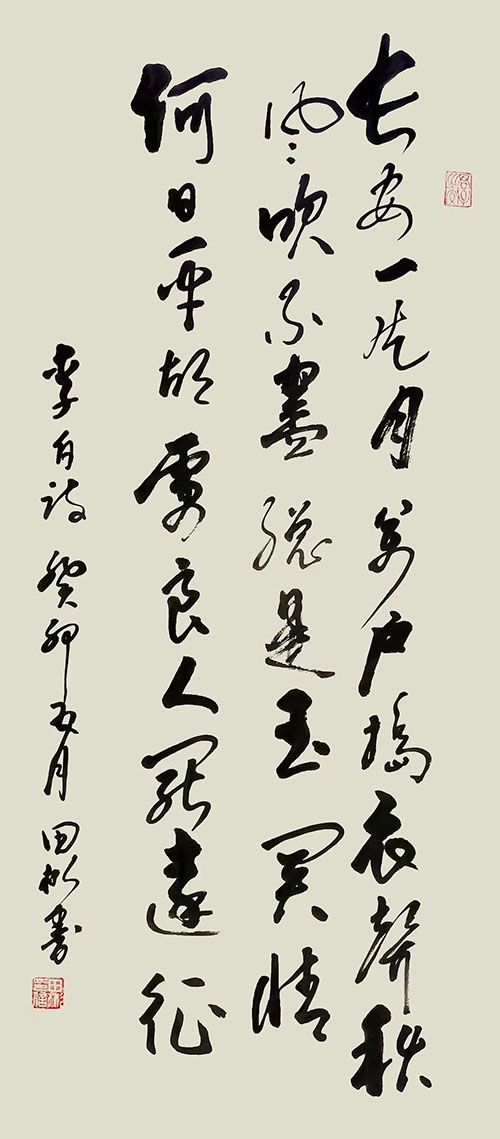 长安一片月万户捣衣声秋
风吹不尽总是玉关情
何日平胡虏良人罢远征
李白诗 癸卯五月 田彬书